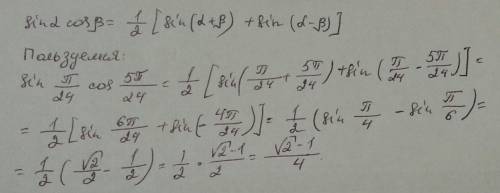 sinα cosβ = 1/2 [sin(α+β) + sin(α-β)]
Пользуемся:
sin π/24 cos 5π/24 = 1/2 [sin(π/24 + 5π/24) + sin(π/24 - 5π/24)] =
= 1/2 [sin 6π/24 + sin(- 4π/24)] = 1/2 (sin π/4 - sin π/6) =
= 1/2 (√2/2 - 1/2) = 1/2 · √2-1/2 = √2-1/4